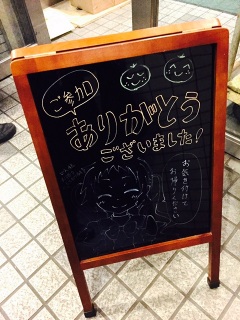 ご参加
ありがとう
ございました!
お気を付けて
お帰りください